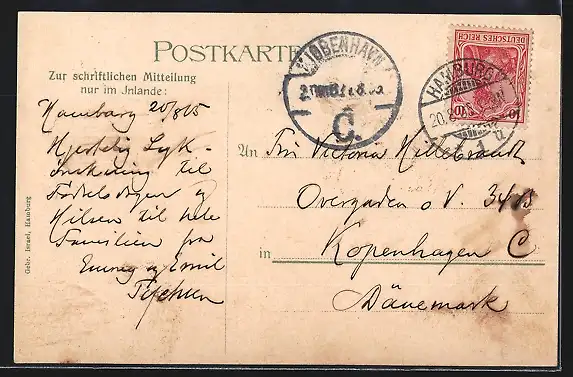 POSTKARTE
Zur schriftlichen Mitteilung
nur im Jnlande:
Hamburg 20/8 05
Hjertelig Lyk-
önskning til
Födelsdagen og
Hilsen til hele
Familien fra
Emmy og Emil
KJØBENHAVN
C.
DEUTSCHES REICH
10 10
HAMBURG
20.8.05
1
An Frn Victoria Hillebrandt
Overgaden o V. 34
in Kopenhagen C
Dänemark
Gebr. Israel, Hamburg